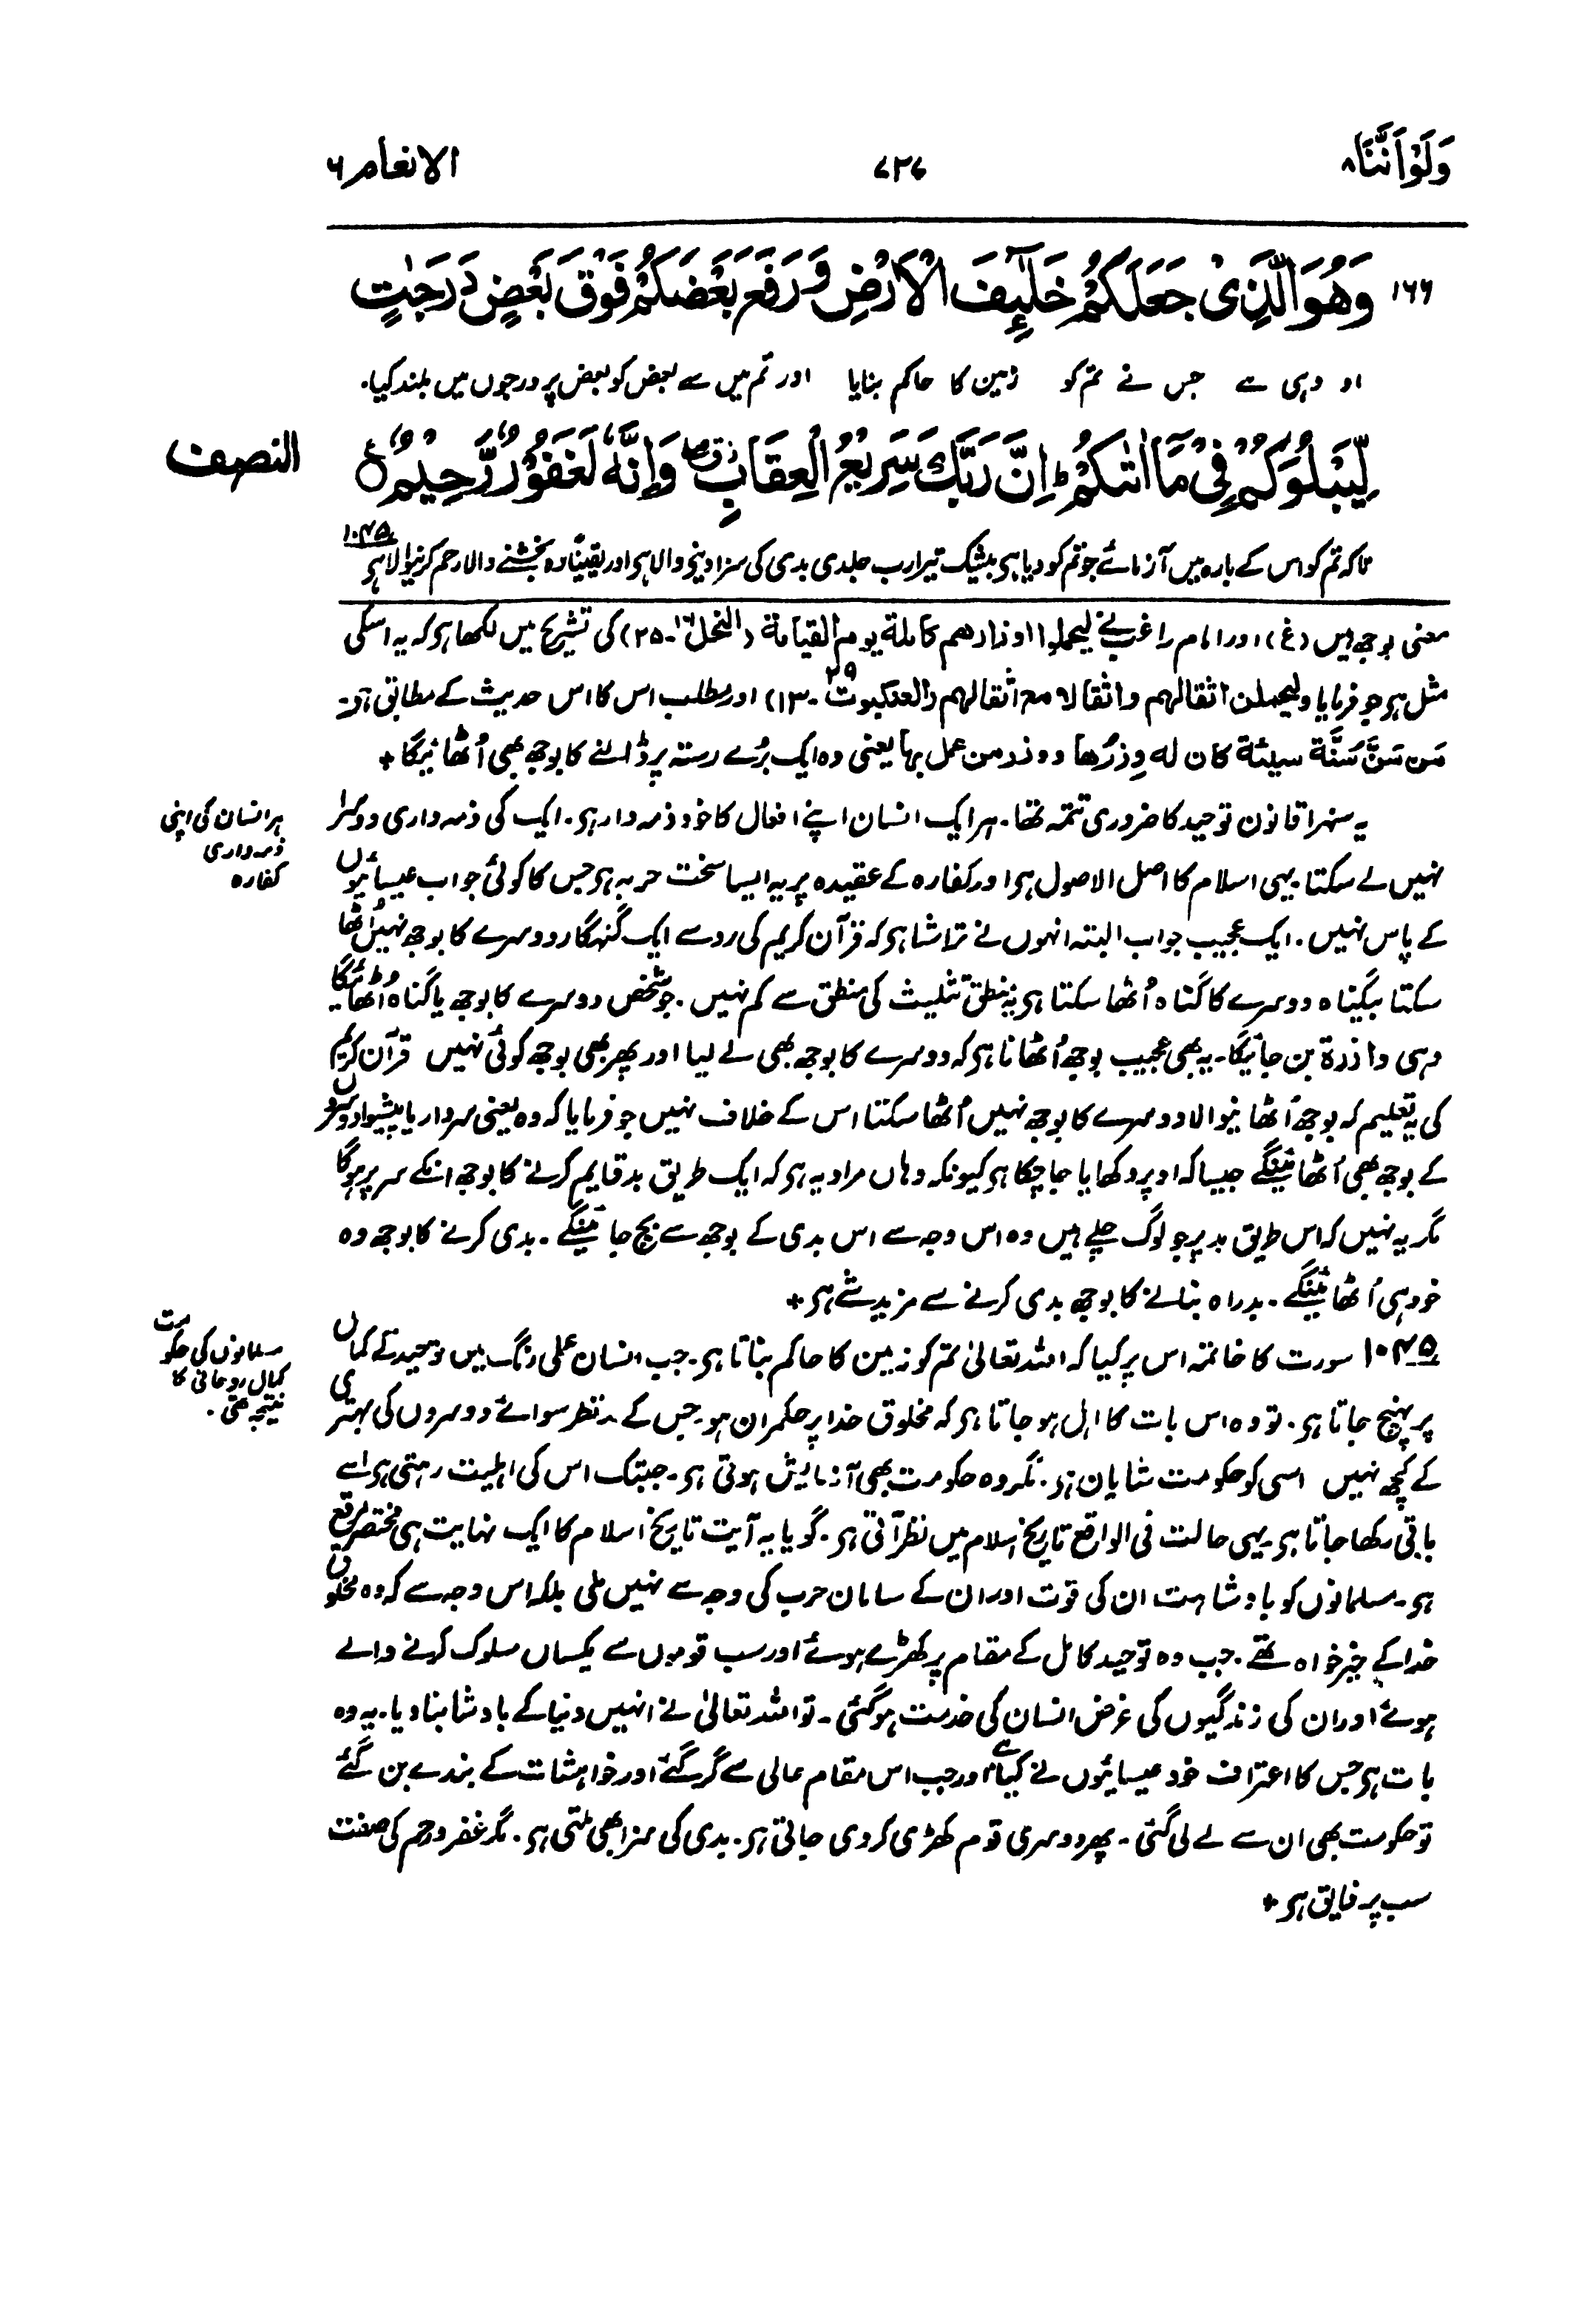 وَلَوْاَنَّنَا۸
۷۲۷
الانعام۶
۱۶۶ وَهُوَ الَّذِىْ جَعَلَكُمْ خَلٰٓئِفَ الْاَرْضِ وَرَفَعَ بَعْضَكُمْ فَوْقَ بَعْضٍ دَرَجٰتٍ
او وہی ہے جس نے تم کو زمین کا حاکم بنایا اور تم میں سے بعض کو بعض پر درجوں میں بلند کیا۔
لِّيَبْلُوَكُمْ فِىْ مَآ اٰتٰىكُمْ ؕ اِنَّ رَبَّكَ سَرِيْعُ الْعِقَابِ ۖ وَاِنَّهٗ لَغَفُوْرٌ رَّحِيْمٌ ۝ ع
النصف
تاکہ تم کو اس کے بارہ میں آزمائے جو تم کو دیا ہی بیشک تیرا رب جلدی بدی کی سزا دینے والا ہی اور یقیناً وہ بخشنے والا رحم کرنیوالا ہی ۱۰۴۵
معنی بوجھ ہیں (غ) اور امام راغب نے لیحملوا اوزارهم كاملة يوم القيامة (النحل۱۶-۲۵) کی تشریح میں لکھا ہی کہ یہ اسکی
مثل ہی جو فرمایا وليحملن اثقالهم واثقالا مع اثقالهم (العنكبوت۲۹-۱۳) اور مطلب اس کا اس حدیث کے مطابق ہی۔
مَن سَنَّ سَنَّة سيئة كان له وِزرُها ووزر من عمل بها یعنی وہ ایک بُرے رستہ پر ڈالنے کا بوجھ بھی اُٹھائیگا +
یہ سنہرا قانون توحید کا ضروری تتمہ تھا۔ ہر ایک انسان اپنے افعال کا خود ذمہ دار ہی۔ ایک کی ذمہ داری دوسرا
ہر انسان کی اپنی
ذمہ داری
کفارہ
نہیں لے سکتا۔ یہی اسلام کا اصل الاصول ہی اور کفارہ کے عقیدہ پر یہ ایسا سخت حربہ ہی جس کا کوئی جواب عیسائیوں
کے پاس نہیں۔ ایک عجیب جواب البتہ انہوں نے تراشا ہی کہ قرآن کریم کی رو سے ایک گنہگار دوسرے کا بوجھ نہیں اُٹھا
سکتا بیگناہ دوسرے کا گناہ اُٹھا سکتا ہی یہ منطق تثلیث کی منطق سے کم نہیں۔ جو شخص دوسرے کا بوجھ یا گناہ اُٹھائیگا
وہی وازرة بن جائیگا۔ یہ بھی عجیب بوجھ اُٹھانا ہی کہ دوسرے کا بوجھ بھی لے لیا اور پھر بھی بوجھ کوئی نہیں قرآن کریم
کی یہ تعلیم کہ بوجھ اُٹھانیوالا دوسرے کا بوجھ نہیں اُٹھا سکتا اس کے خلاف نہیں جو فرمایا کہ وہ یعنی سردار یا پیشوا دوسروں
کے بوجھ بھی اُٹھائینگے جیسا کہ اوپر دکھایا جا چکا ہی کیونکہ وہاں مراد یہ ہی کہ ایک طریق بد قایم کرنے کا بوجھ انکے سر پر ہوگا
مگر یہ نہیں کہ اس طریق بد پر جو لوگ چلے ہیں وہ اس وجہ سے اس بدی کے بوجھ سے بچ جائینگے۔ بدی کرنے کا بوجھ وہ
خود ہی اُٹھائینگے۔ بد راہ بنانے کا بوجھ بدی کرنے سے مزید شے ہی +
۱۰۴۵ سورت کا خاتمہ اس پر کیا کہ اللہ تعالیٰ تم کو زمین کا حاکم بناتا ہی۔ جب انسان عملی رنگ میں توحید کے کمال
مسلمانوں کی حکومت
کمال روحانی کا
نتیجہ تھی۔
پر پہنچ جاتا ہی۔ تو وہ اس بات کا اہل ہو جاتا ہی کہ مخلوق خدا پر حکمران ہو۔ جس کے مدنظر سوائے دوسروں کی بہتری
کے کچھ نہیں اسی کو حکومت شایان ہی۔ مگر وہ حکومت بھی آزمایش ہوتی ہی۔ جبتک اس کی اہلیت رہتی ہی اسے
باقی رکھا جاتا ہی۔ یہی حالت فی الواقع تاریخ اسلام میں نظر آتی ہی۔ گویا یہ آیت تاریخ اسلام کا ایک نہایت ہی مختصر مرقع
ہی۔ مسلمانوں کو بادشاہت ان کی قوت اور ان کے سامان حرب کی وجہ سے نہیں ملی بلکہ اس وجہ سے کہ وہ مخلوق
خدا کے خیر خواہ تھے۔ جب وہ توحید کامل کے مقام پر کھڑے ہوئے اور سب قوموں سے یکساں سلوک کرنے والے
ہوئے اور ان کی زندگیوں کی غرض انسان کی خدمت ہوگئی۔ تو اللہ تعالیٰ نے انہیں دنیا کے بادشا بنا دیا۔ یہ وہ
بات ہی جس کا اعتراف خود عیسائیوں نے کیا ہے اور جب اس مقام عالی سے گر گئے اور خواہشات کے بندے بن گئے
تو حکومت بھی ان سے لے لی گئی۔ پھر دوسری قوم کھڑی کر دی جاتی ہی۔ بدی کی سزا بھی ملتی ہی۔ مگر غفر و رحم کی صفت
سب پر فایق ہی +